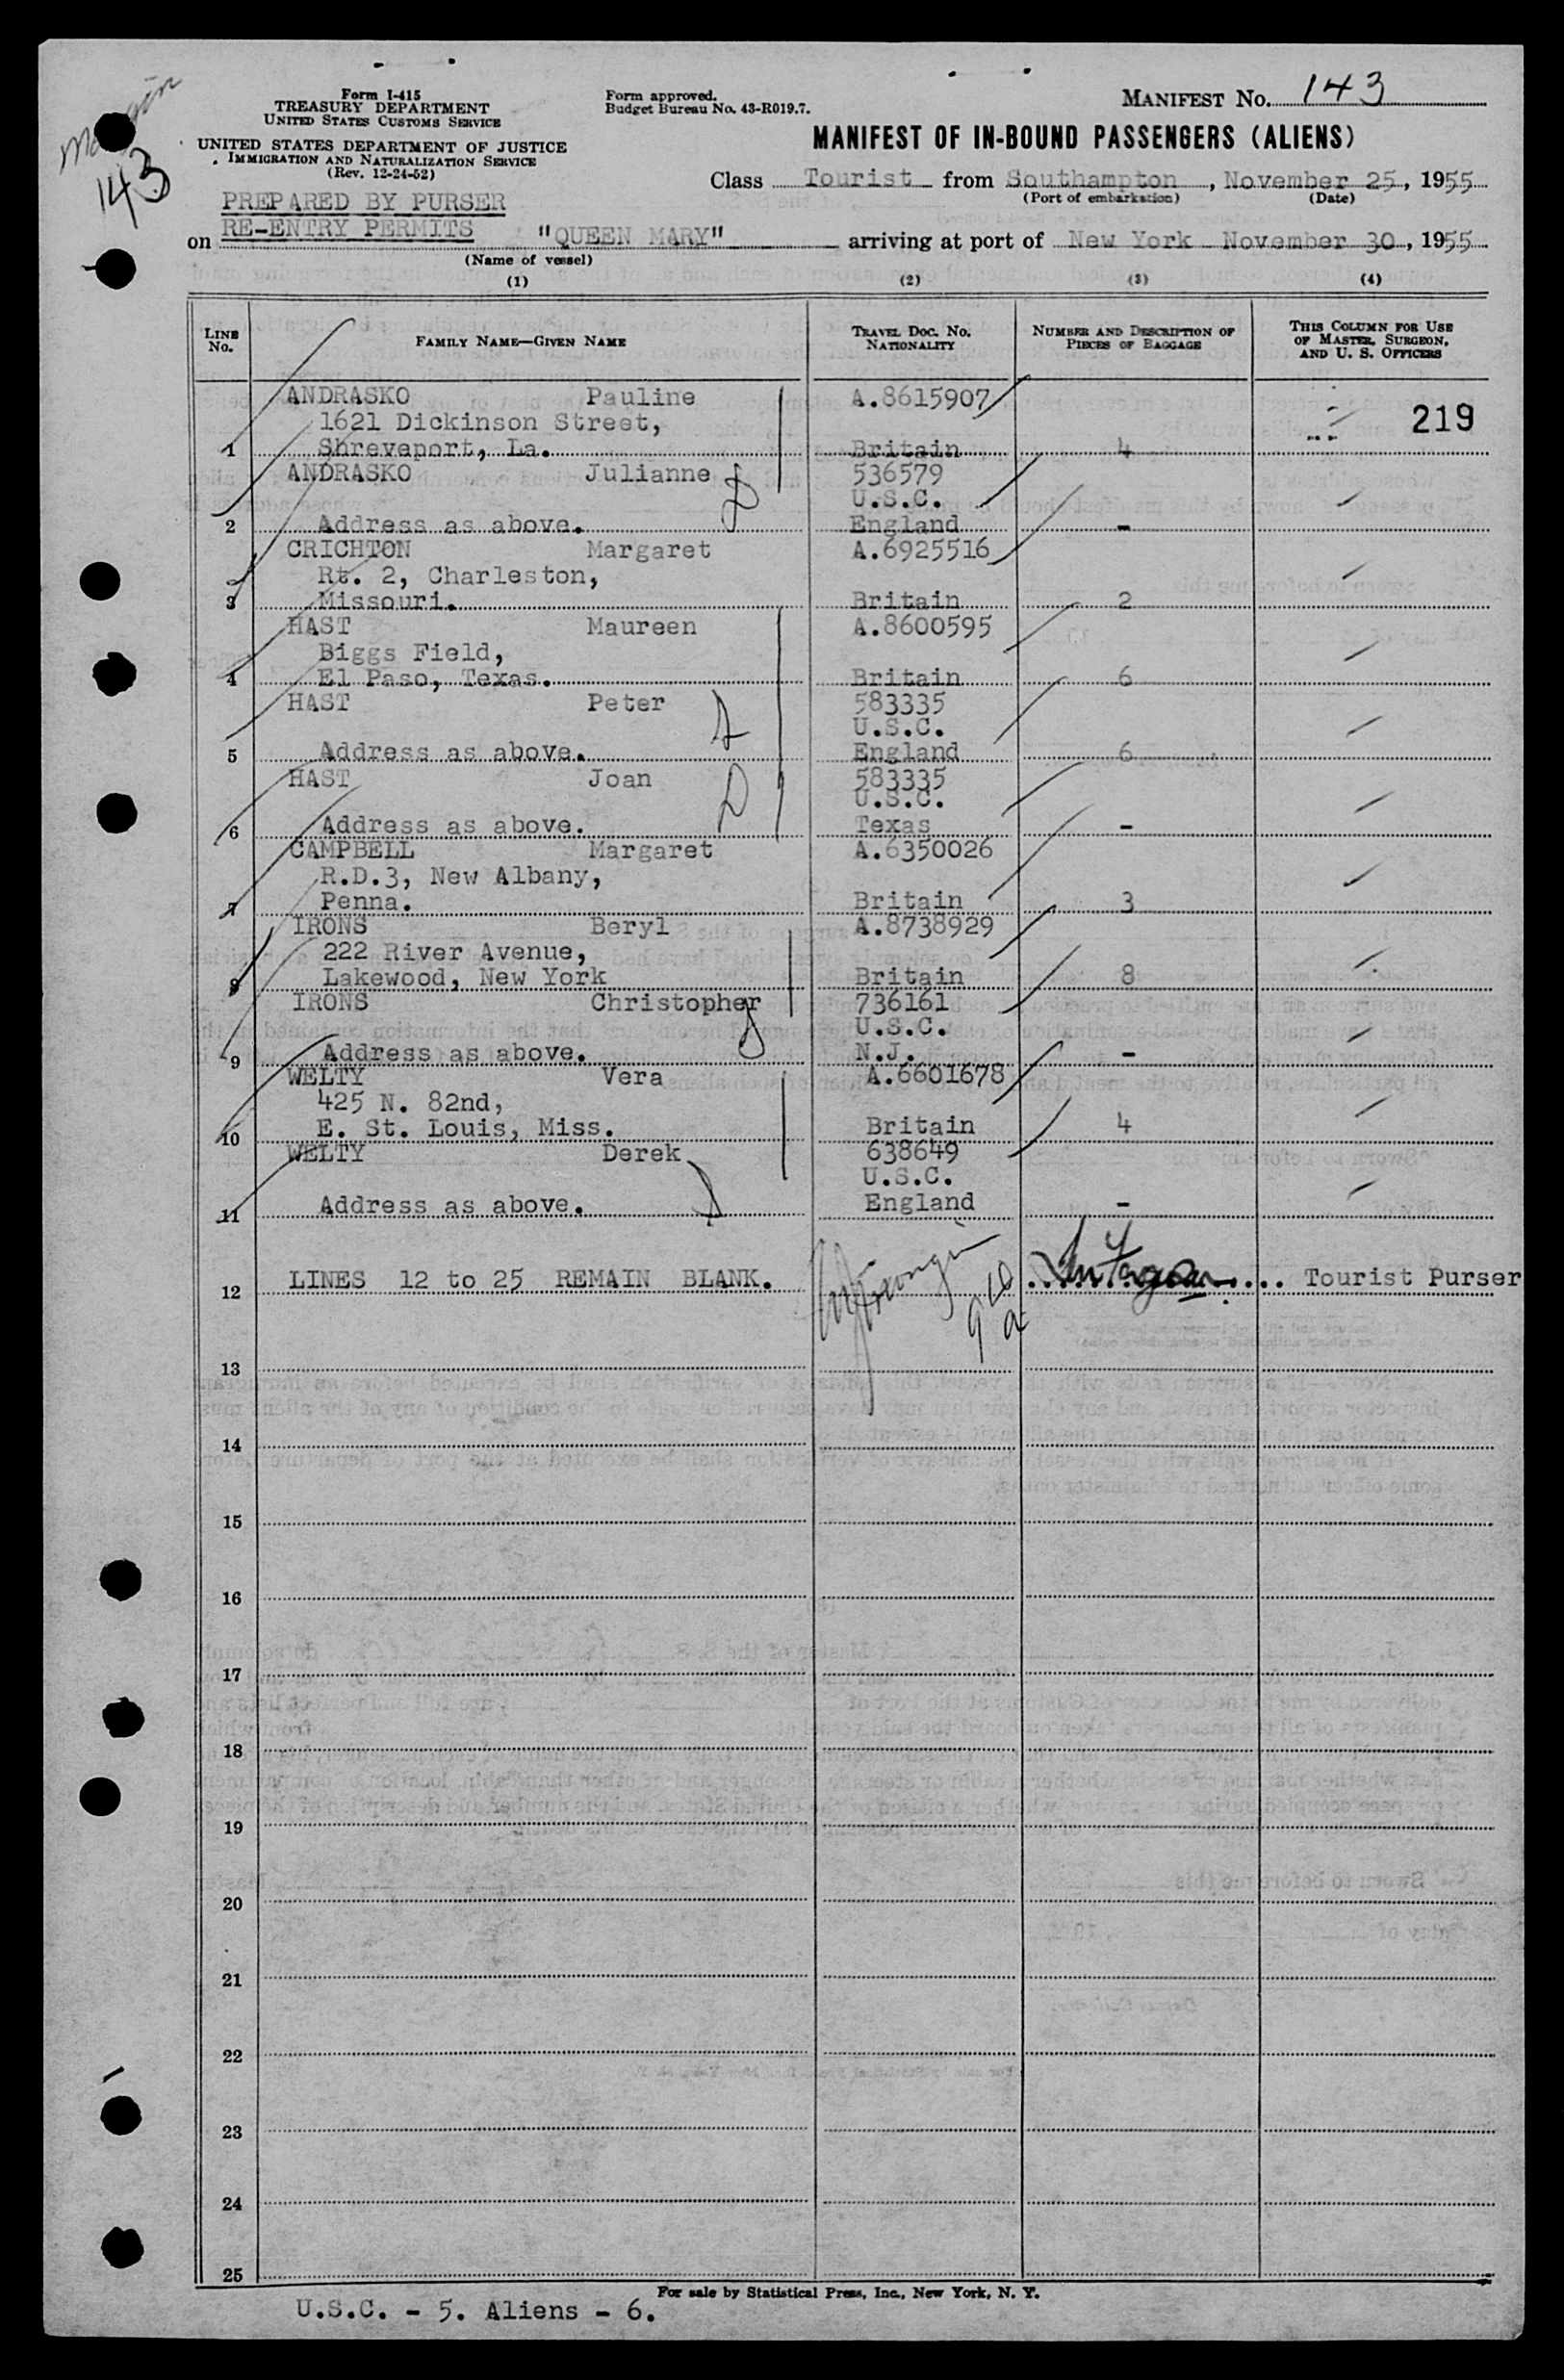 Margin
143
Form I-415
TREASURY DEPARTMENT
UNITED STATES CUSTOMS SERVICE
UNITED STATES DEPARTMENT OF JUSTICE
IMMIGRATION AND NATURALIZATION SERVICE
(Rev. 12-24-52)
Form approved.
Budget Bureau No. 43-R019.7.
MANIFEST No. 143
MANIFEST OF IN-BOUND PASSENGERS (ALIENS)
Class Tourist from Southampton, November 25, 1955
(Port of embarkation) (Date)
PREPARED BY PURSER
RE-ENTRY PERMITS
on "QUEEN MARY" arriving at port of New York November 30, 1955
(Name of vessel)
(1) (2) (3) (4)
LINE No. FAMILY NAME—GIVEN NAME TRAVEL DOC. NO. NATIONALITY NUMBER AND DESCRIPTION OF PIECES OF BAGGAGE THIS COLUMN FOR USE OF MASTER, SURGEON, AND U. S. OFFICERS
ANDRASKO Pauline A.8615907
1621 Dickinson Street, 219
1 Shreveport, La. Britain 4
ANDRASKO Julianne 536579
U.S.C.
2 Address as above. England -
CRICHTON Margaret A.6925516
Rt. 2, Charleston,
3 Missouri. Britain 2
HAST Maureen A.8600595
Biggs Field,
4 El Paso, Texas. Britain 6
HAST Peter 583335
U.S.C.
5 Address as above. England 6
HAST Joan 583335
U.S.C.
6 Address as above. Texas -
CAMPBELL Margaret A.6350026
R.D.3, New Albany,
7 Penna. Britain 3
IRONS Beryl A.8738929
222 River Avenue,
8 Lakewood, New York Britain 8
IRONS Christopher 736161
U.S.C.
9 Address as above. N.J. -
WELTY Vera A.6601678
425 N. 82nd,
10 E. St. Louis, Miss. Britain 4
WELTY Derek 638649
U.S.C.
11 Address as above. England -
12 LINES 12 to 25 REMAIN BLANK. Tourist Purser
13
14
15
16
17
18
19
20
21
22
23
24
25
For sale by Statistical Press, Inc., New York, N. Y.
U.S.C. - 5. Aliens - 6.